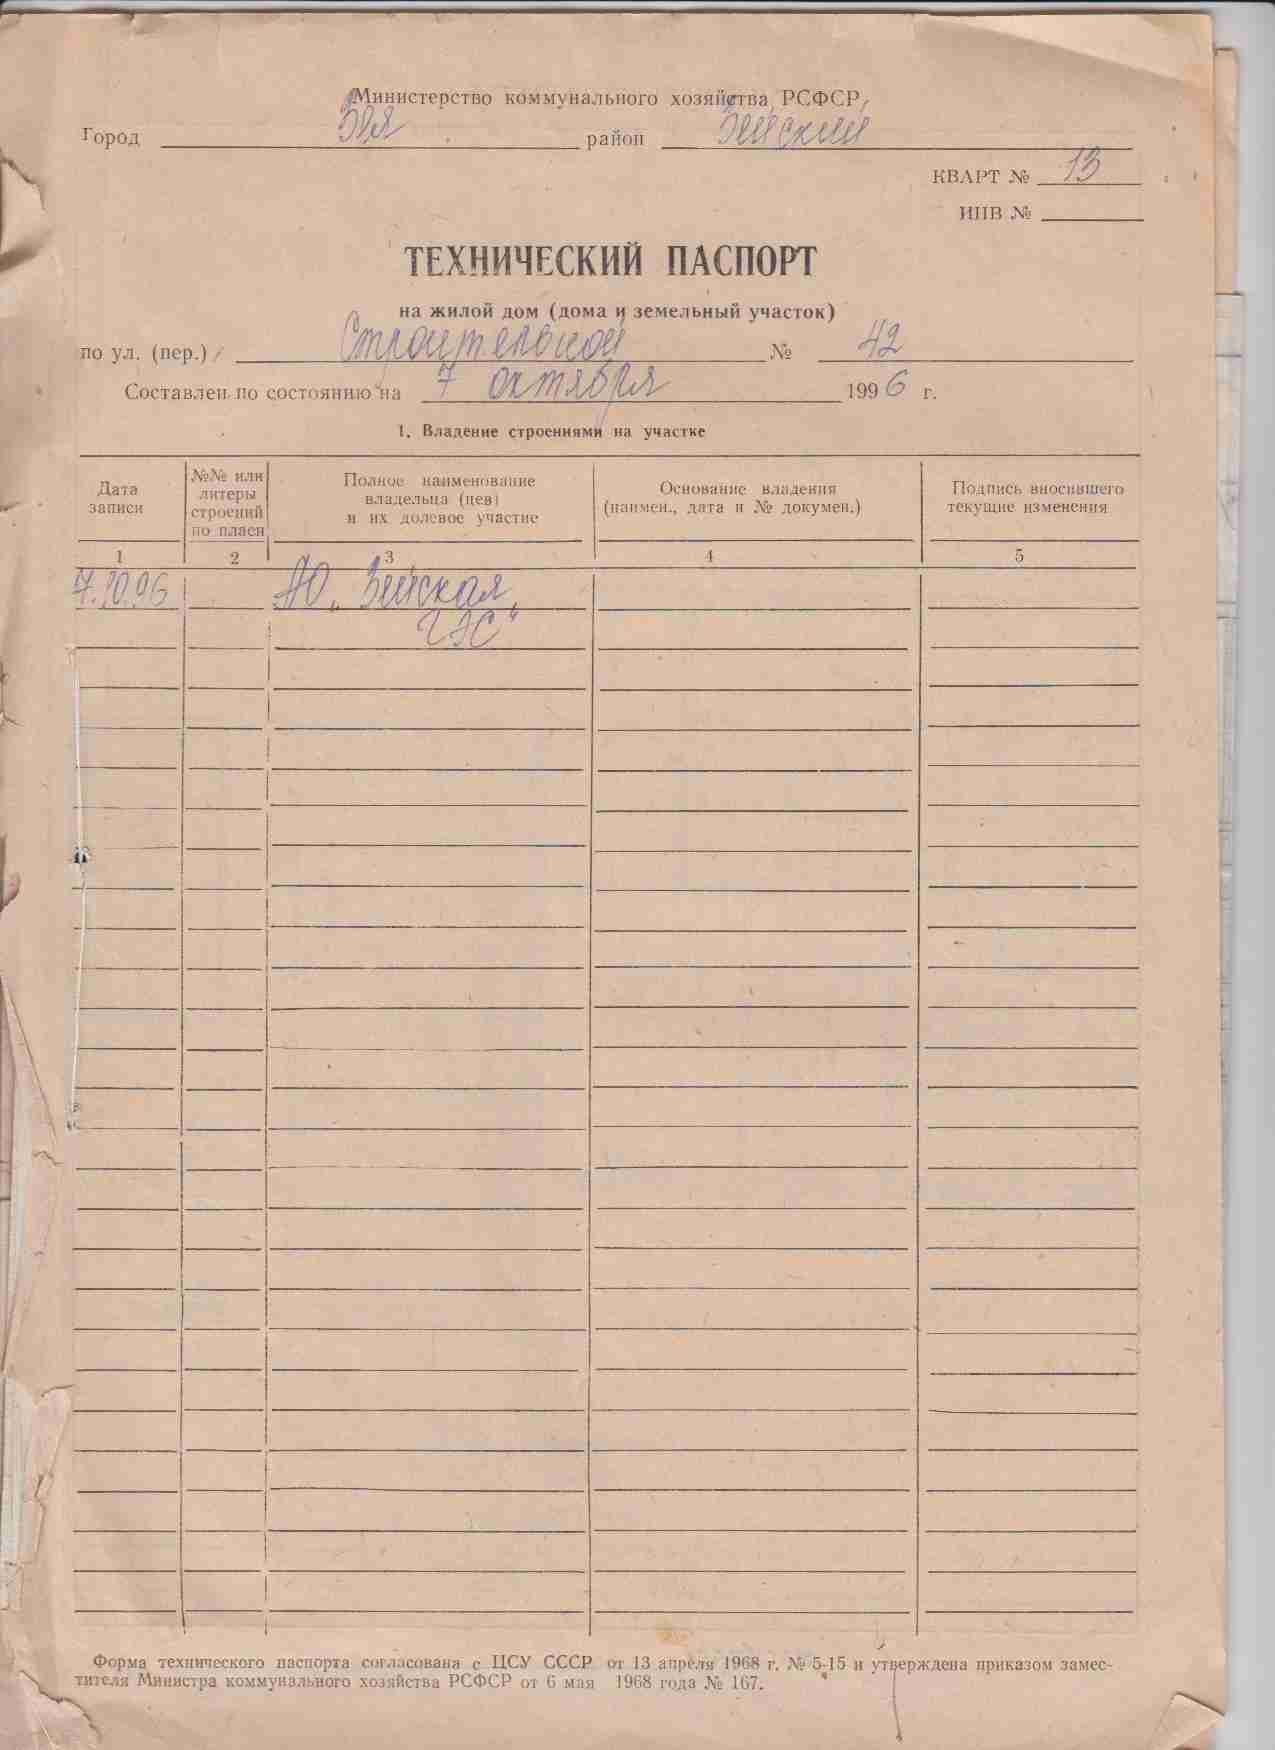 Министерство коммунального хозяйства РСФСР
Город Зея район Зейский
КВАРТ № 13
ИНВ №
ТЕХНИЧЕСКИЙ ПАСПОРТ
на жилой дом (дома и земельный участок)
по ул. (пер.) Строительной № 42
Составлен по состоянию на 7 октября 1996 г.
1. Владение строениями на участке
Дата записи
№№ или литеры строений по плаен
Полное наименование владельца (цев) и их долевое участие
Основание владения (наимен., дата и № докумен.)
Подпись вносившего текущие изменения
1 2 3 4 5
7.10.96 АО „Зейская
ГЭС"
Форма технического паспорта согласована с ЦСУ СССР от 13 апреля 1968 г. № 5-15 и утверждена приказом замес-
тителя Министра коммунального хозяйства РСФСР от 6 мая 1968 года № 167.